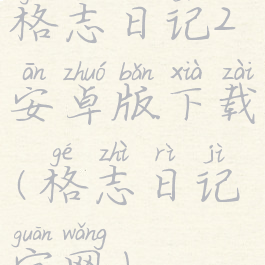 格志日记2
ān zhuó bǎn xià zài
安卓版下载
gé zhì rì jì
(格志日记
guān wǎng
官网)